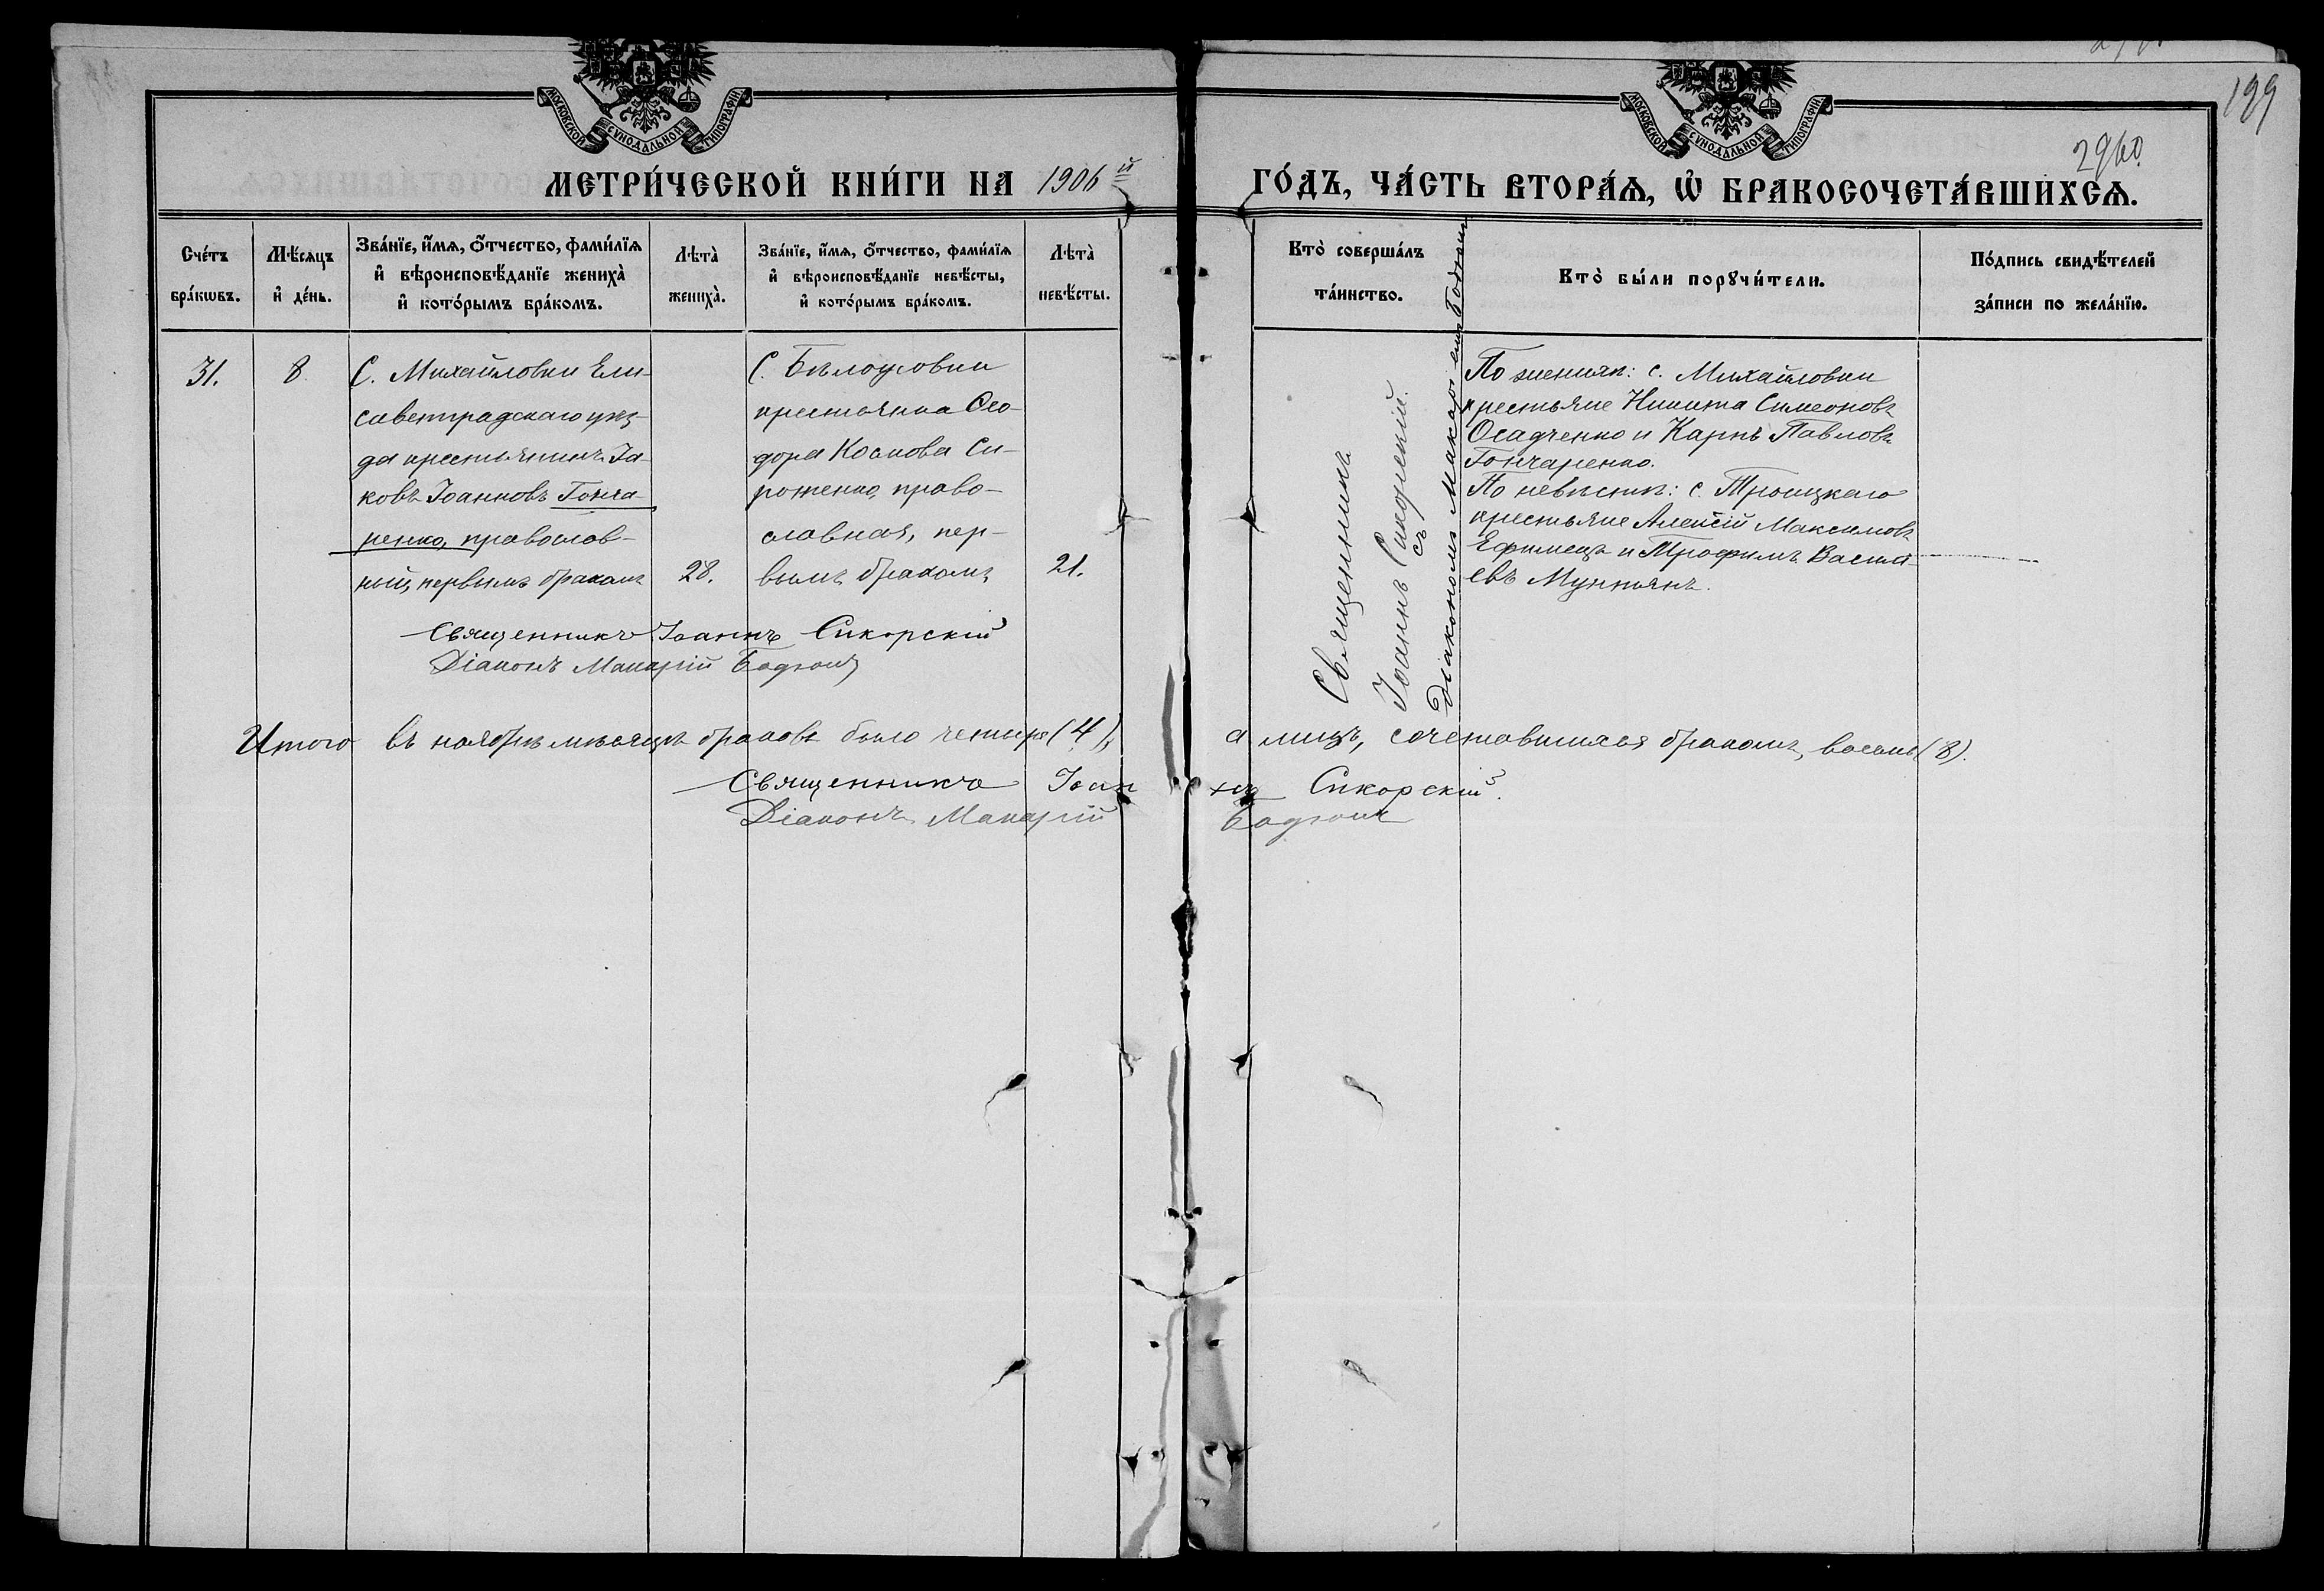 199
2960.
МОСКОВСКОЙ СѴНОДАЛЬНОЙ ТИПОГРАФІИ
МОСКОВСКОЙ СѴНОДАЛЬНОЙ ТИПОГРАФІИ
МЕТРИ́ЧЕСКОЙ КНИ́ГИ НА 1906й
ГО́ДЪ, ЧА́СТЬ ВТОРА́Ѧ, Ѿ БРАКОСОЧЕТА́ВШИХСѦ.
Сче́тъ
бра́кѡвъ.
Мѣ́сѧцъ
и҆ де́нь.
Зва́нїе, и҆́мѧ, ѻ҆́тчество, фами́лїѧ
и҆ вѣроисповѣ́данїе жениха̀
и҆ кото́рымъ бра́комъ.
Лѣта̀
жениха̀.
Зва́нїе, и҆́мѧ, ѻ҆́тчество, фами́лїѧ
и҆ вѣроисповѣ́данїе невѣ́сты,
и҆ кото́рымъ бра́комъ.
Лѣта̀
невѣ́сты.
Кто̀ соверша́лъ
та́инство.
Кто̀ бы́ли порꙋчи́тели.
По́дпись свидѣ́телей
за́писи по жела́нїю.
31.
8
С. Михайловки Ели-
саветградскаго уѣз-
да крестьянинъ Іа-
ковъ Іоанновъ Гонча
ренко, православ-
ный, первымъ бракомъ
28.
С. Бѣлоусовки
крестьянка Ѳео-
дора Космова Си-
роженко, право-
славная, пер-
вымъ бракомъ
21.
Священникъ
Іоаннъ Сикорскій.
съ
діакономъ Макаріемъ
По женихѣ: с. Михайловки
крестьяне Никита Симеоновъ
Осадченко и Карпъ Павловъ
Гончаренко.
По невѣстѣ: с. Троицкаго
крестьяне Алексій Максимовъ
Ефимецъ и Трофимъ Василі-
евъ Мунтянъ.
Священникъ Іоаннъ Сикорскій
Діаконъ Макарій
Итого въ ноябрѣ мѣсяцѣ браковъ было четыре (4),
а лицъ, сочетавшихся бракомъ, восемь (8).
Священникъ Іоаннъ Сикорскій.
Діаконъ Макарій